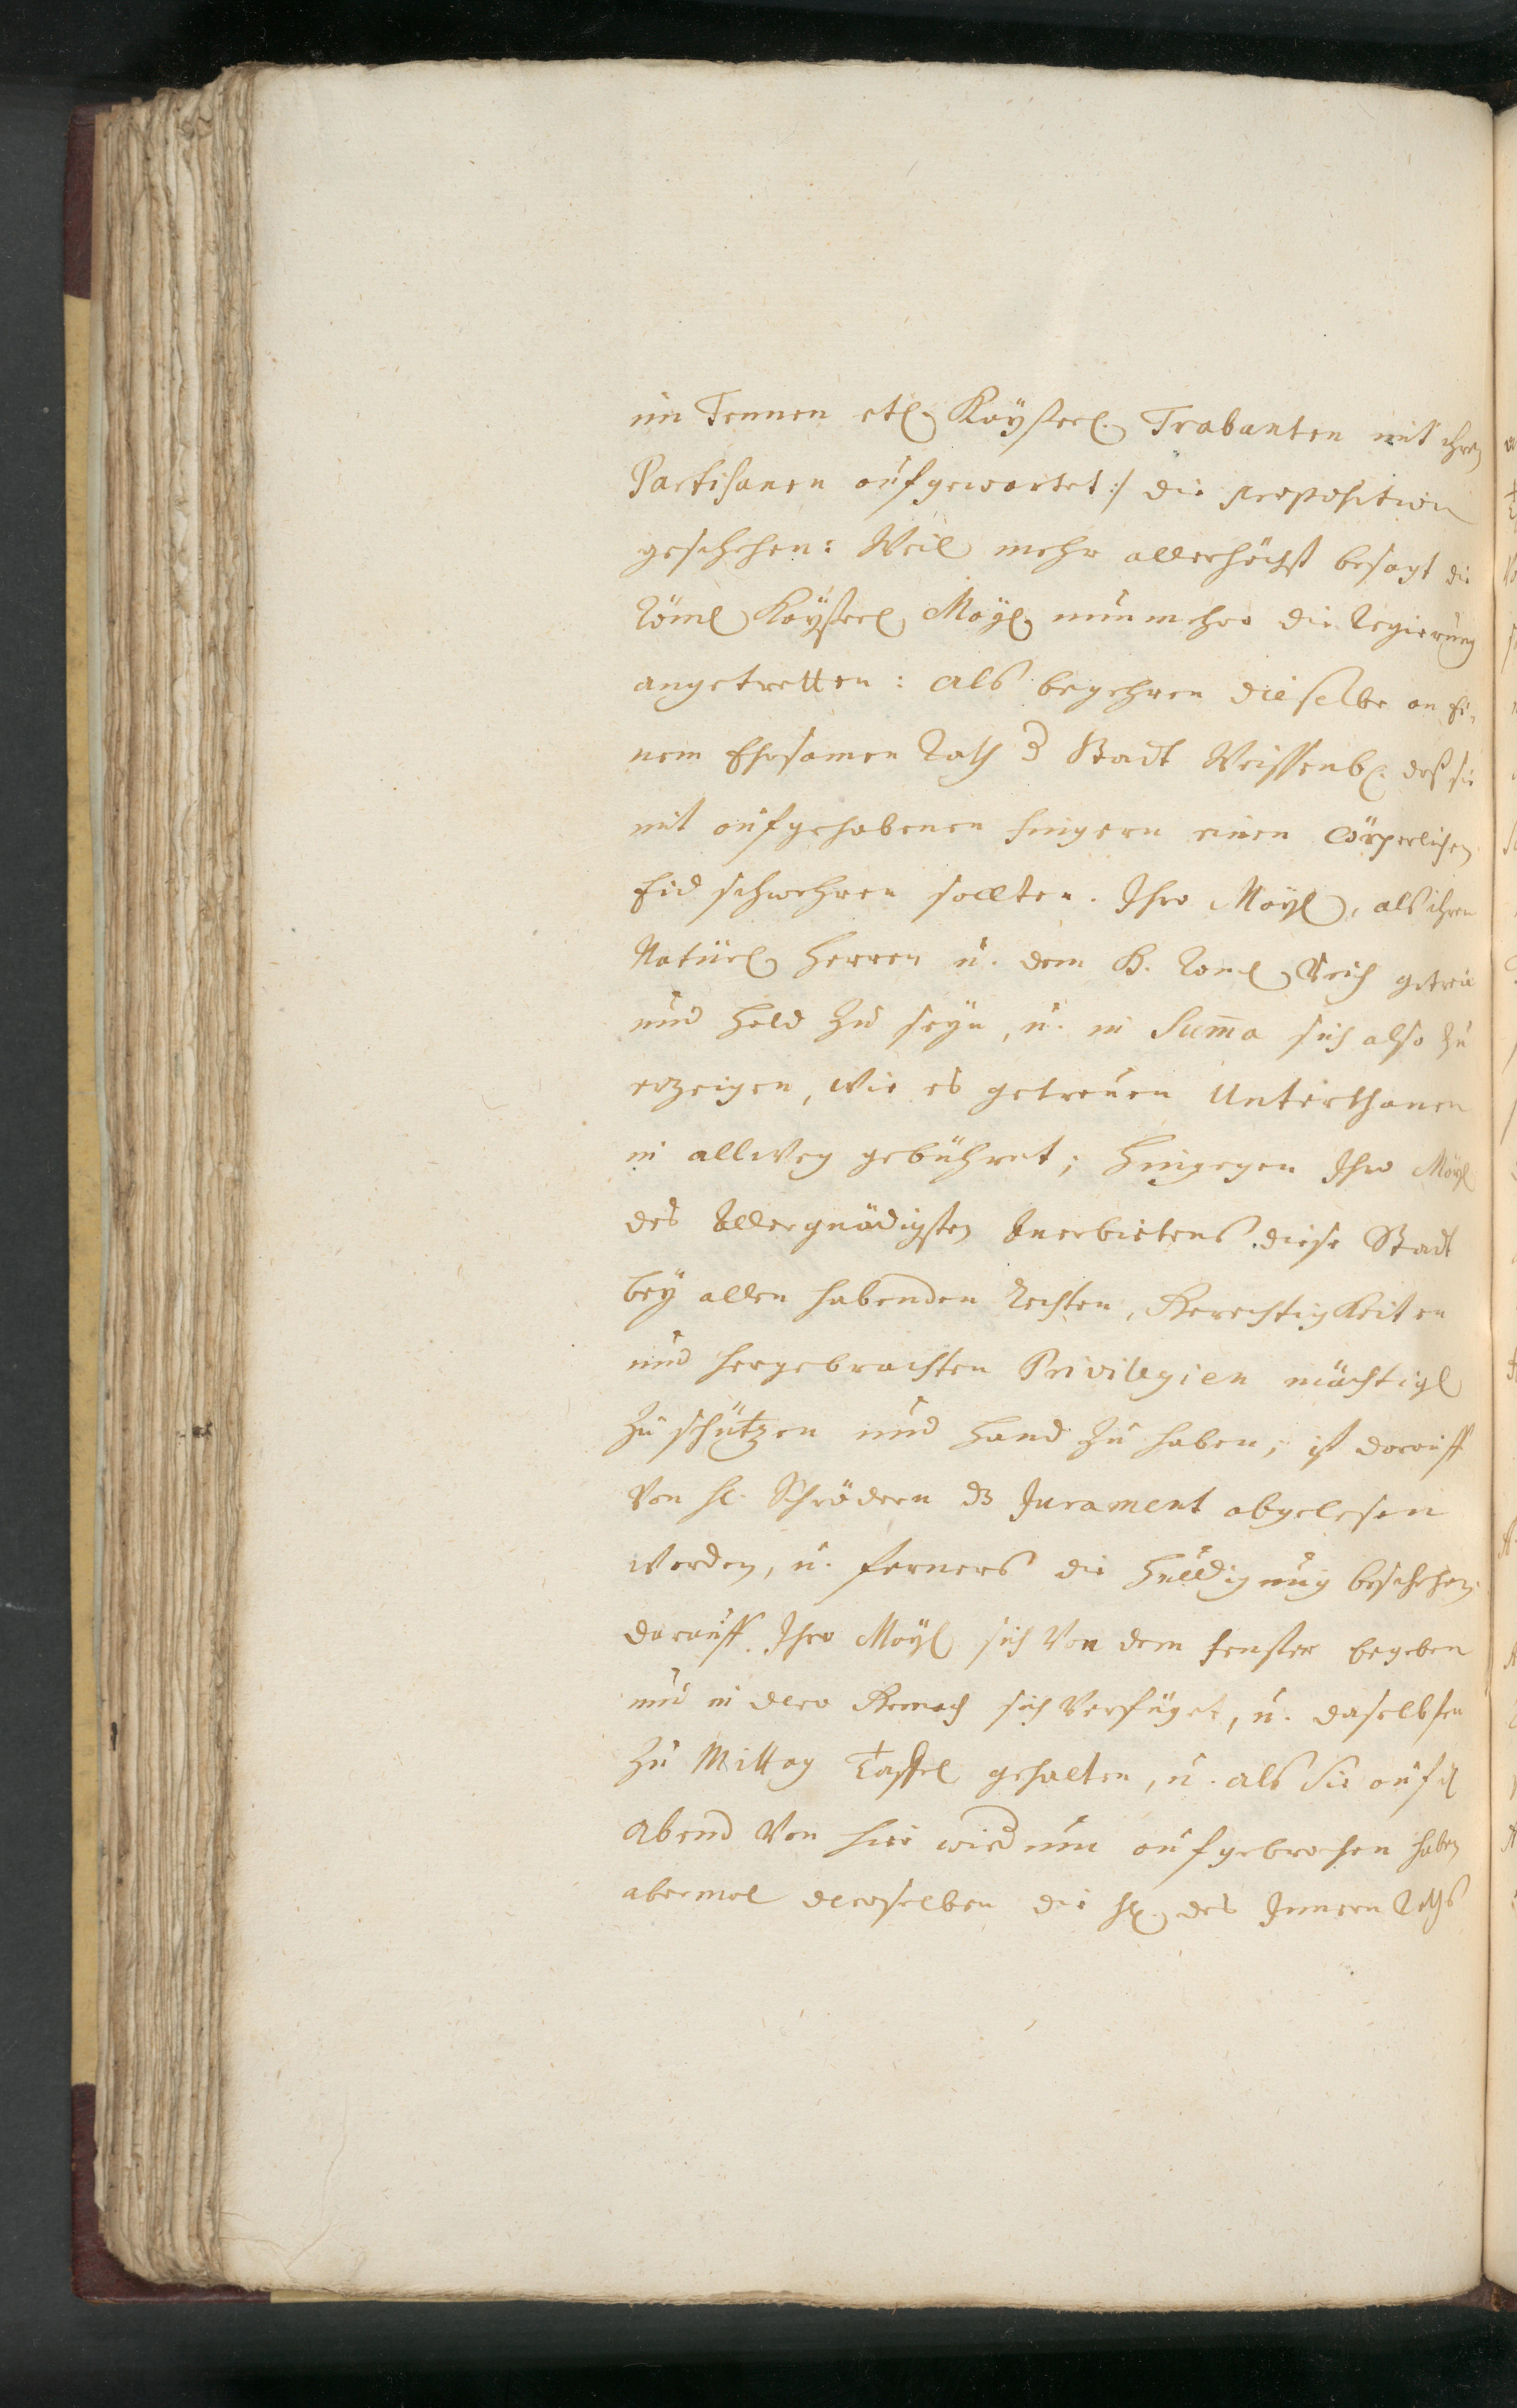 im Tennen etl. Kaÿserl. Trabanten mit ihren
Partisanen aufgewartet :/ die proposition
geschehen: Weil mehr allerhöchst besagt die
Röml. Kaÿserl. Maÿl. nunmehro die Regierung
angetretten: als begehren dieselbe an Ei-
nem Ehrsamen Rath d Stadt Weissenb. daß sie
mit aufgehabenen fingern einen cörperlichen
Eid schwehren sollten. Ihro Maÿl., als ihren
Natürl. Herren u. dem H. Röml. Reich getreu
und hold zu seÿn, u. in Sum̄a sich also zu
erzeigen, wie es getreuen Unterthanen
in allweg gebühret; hingegen Ihro Maÿl.
des Allergnädigsten Anerbietens diese Stadt
beÿ allen habenden Rechten, Gerechtigkeiten
und hergebrachten Privilegien mächtigl.
zu schützen und Hand zu haben; ist darauff
von H. Schrödern dz Jurament abgelesen
worden, u. ferners die Huldigung beschehen,
darauff Ihro Maÿl. sich von dem fenster begeben
und in dero Gemach sich verfüget, u. daselbsten
zu Mittag Taffel gehalten, u. als Sie auf d
Abend von hier widum aufgebrochen haben
abermal deroselben die H. des Innern Raths